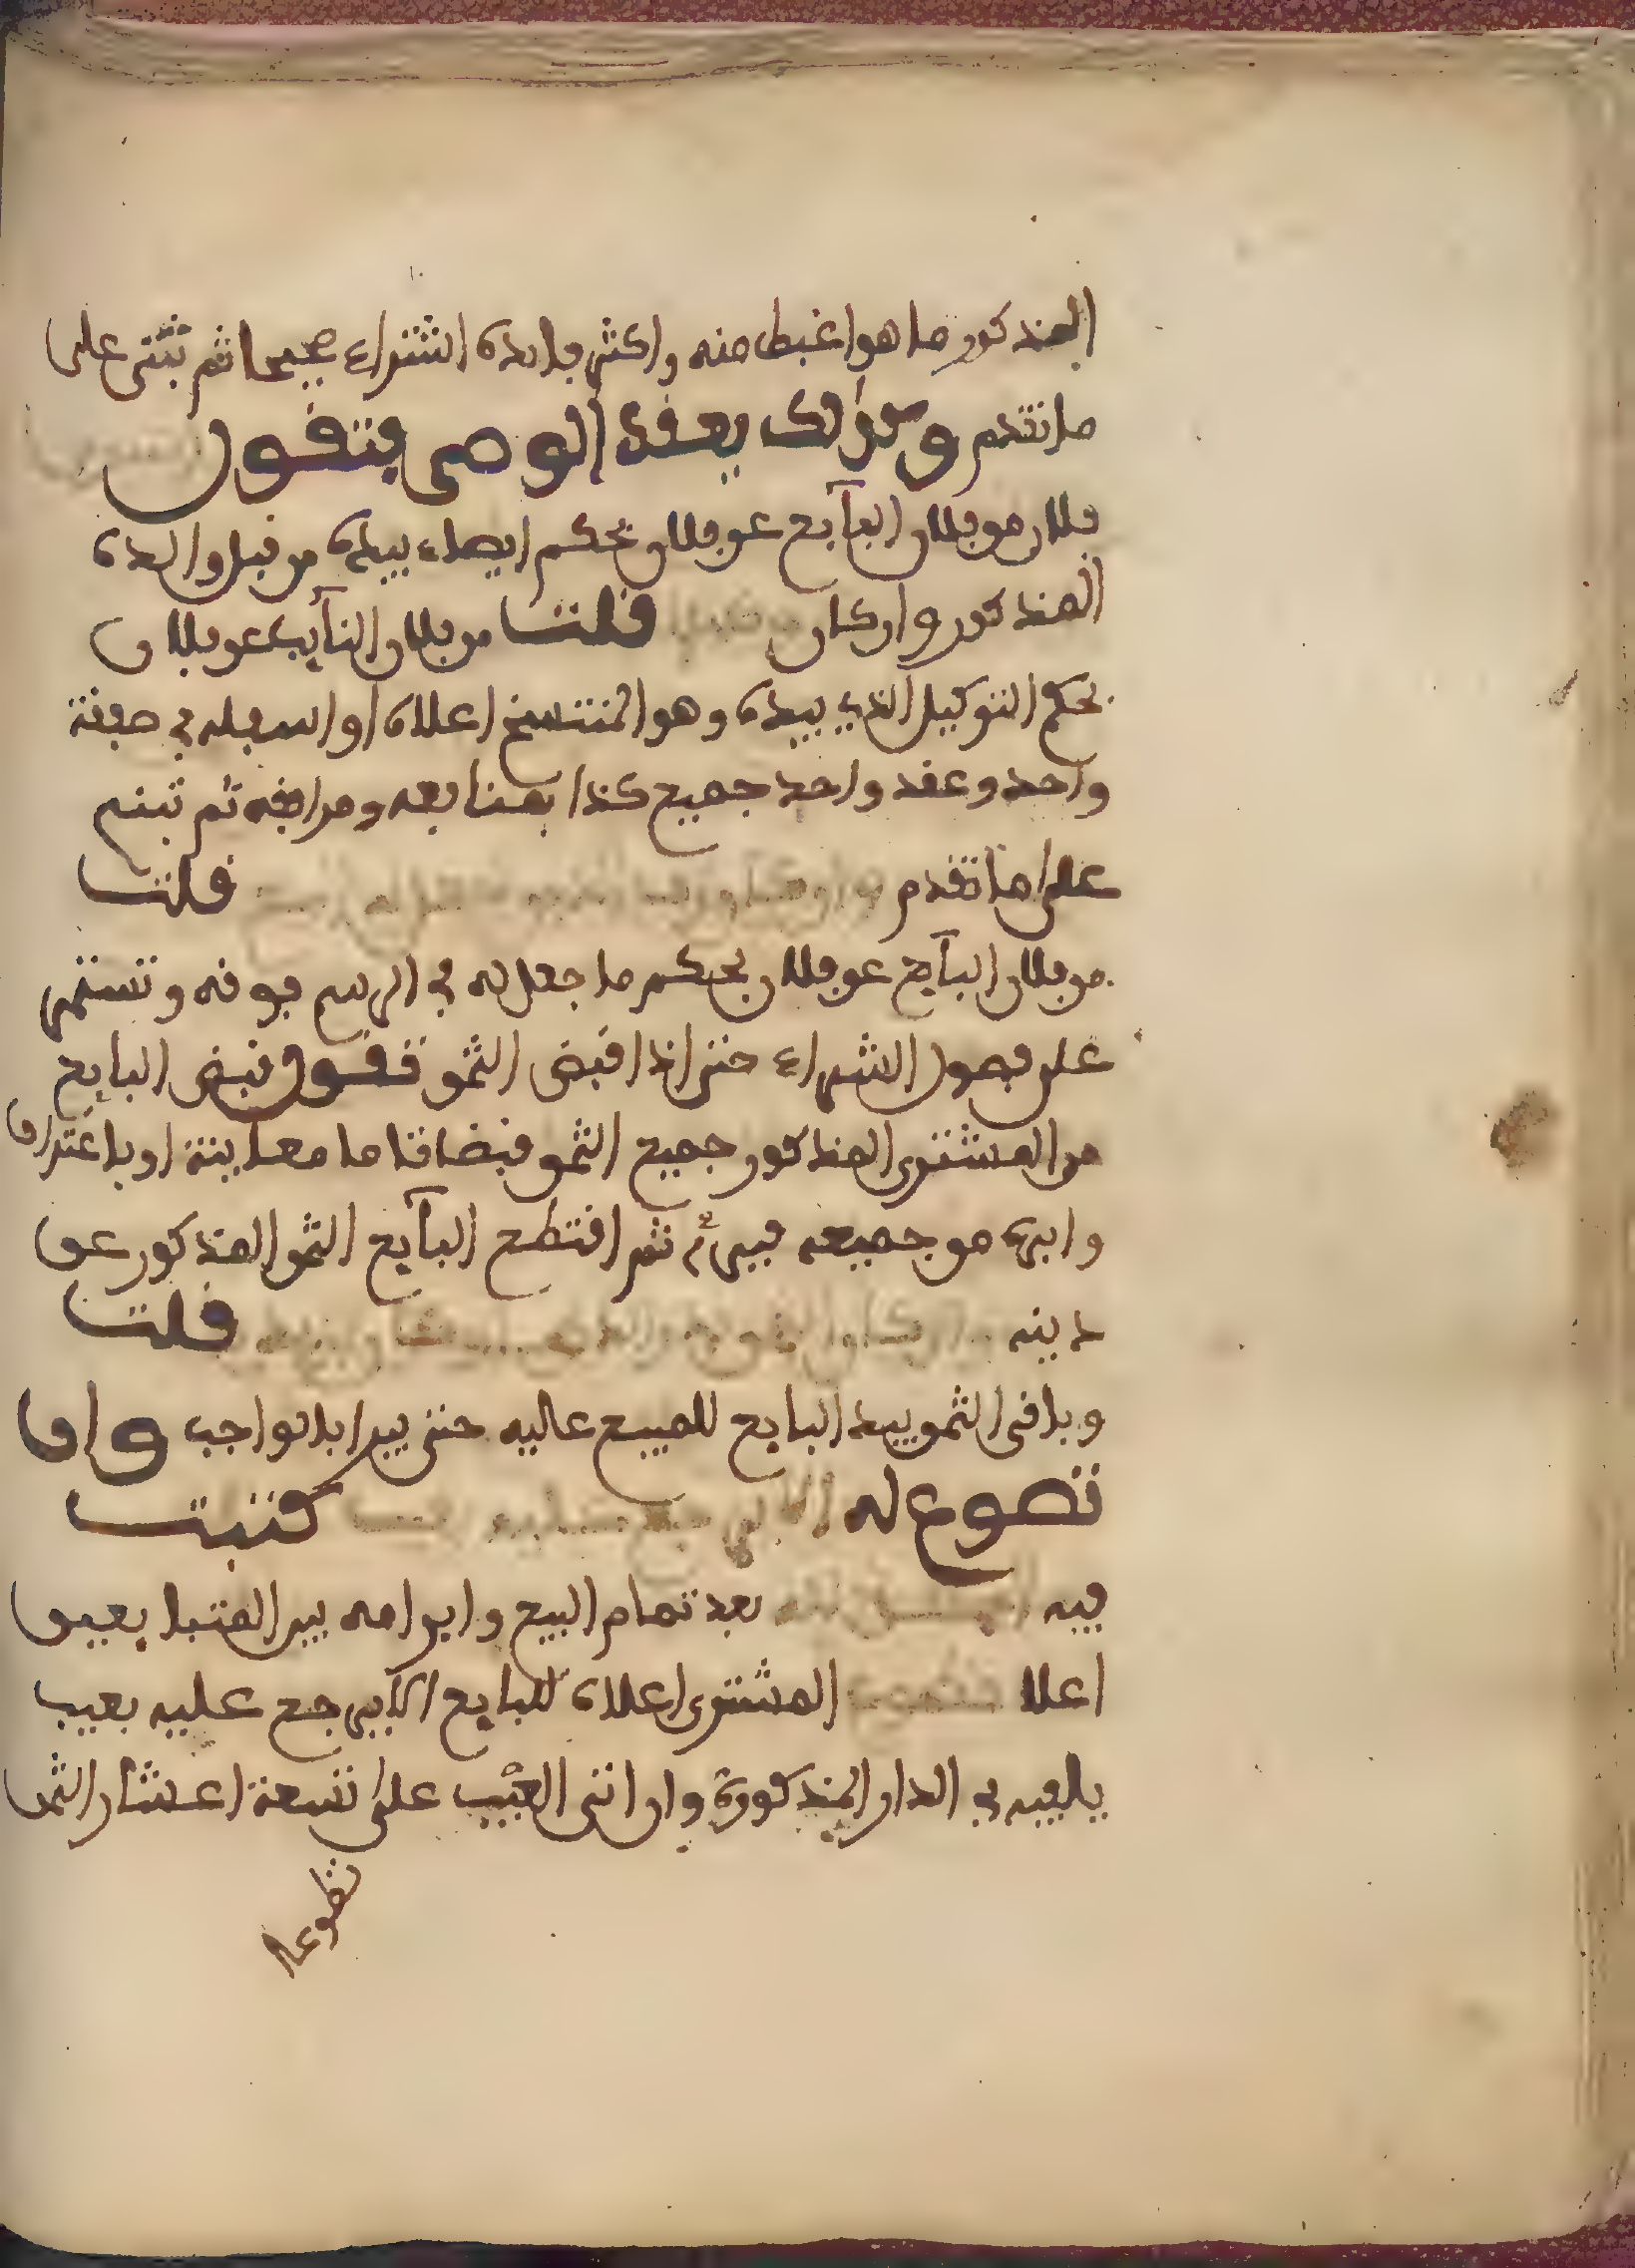 المذكور ما هو اغبط منه واكثر فايدة اشتراء صحيحا ثم تبنى على
ما تقدم وكذالك يعقد الوصي فتقول
فلان من فلان البآيع عن فلان بحكم ايصاء بيده من قبل والده
المذكور وان كان قلت من فلان النآيب عن فلان
بحكم التوكيل الذي بيده وهو المنتسخ اعلاه او اسفله في صفقة
واحد وعقد واحد جميع كذا بمنافعه ومرافقه ثم تبنى
على ما تقدم قلت
من فلان البآيع عن فلان بحكم ما جعل له في الرسم فوقه وتستمر
على فصول الشراء حتى اذا قبض الثمن تقول قبض البايع
من المشترى المذكور جميع الثمن قبضا تاما معاينة او باعتراف
وابرءه من جميعه فبرئ ثم اقتطع البآيع الثمن المذكور عن
دينه قلت
وباقى الثمن بيد البايع للمبيع عاليه حتى يبرا بالواجب وان
تطوع له كتبت
فيه بعد تمام البيع وابرامه بين المتبايعين
اعلا المشترى اعلاه للبايع الا يرجع عليه بعيب
يلفيه في الدار المذكورة وان اتى العيب على تسعة اعشار الثمن
تطوعا